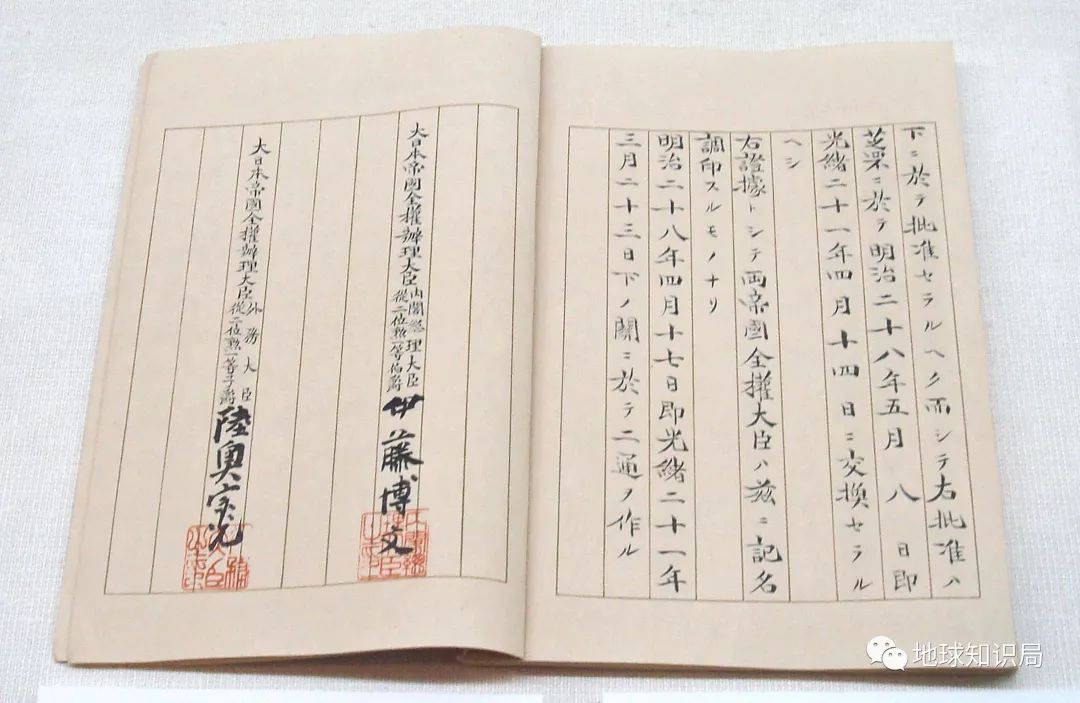 下ニ於テ批准セラルヘク而シテ右批准ハ
芝罘ニ於テ明治二十八年五月八日即
光緒二十一年四月十四日ニ交換セラル
ヘシ
右證據トシテ両帝國全權大臣ハ茲ニ記名
調印スルモノナリ
明治二十八年四月十七日即光緒二十一年
三月二十三日下ノ關ニ於テ二通ヲ作ル
大日本帝國全權辦理大臣內閣總理大臣從二位勲一等伯爵伊藤博文
大日本帝國全權辦理大臣外務大臣從二位勲一等子爵陸奧宗光
地球知识局